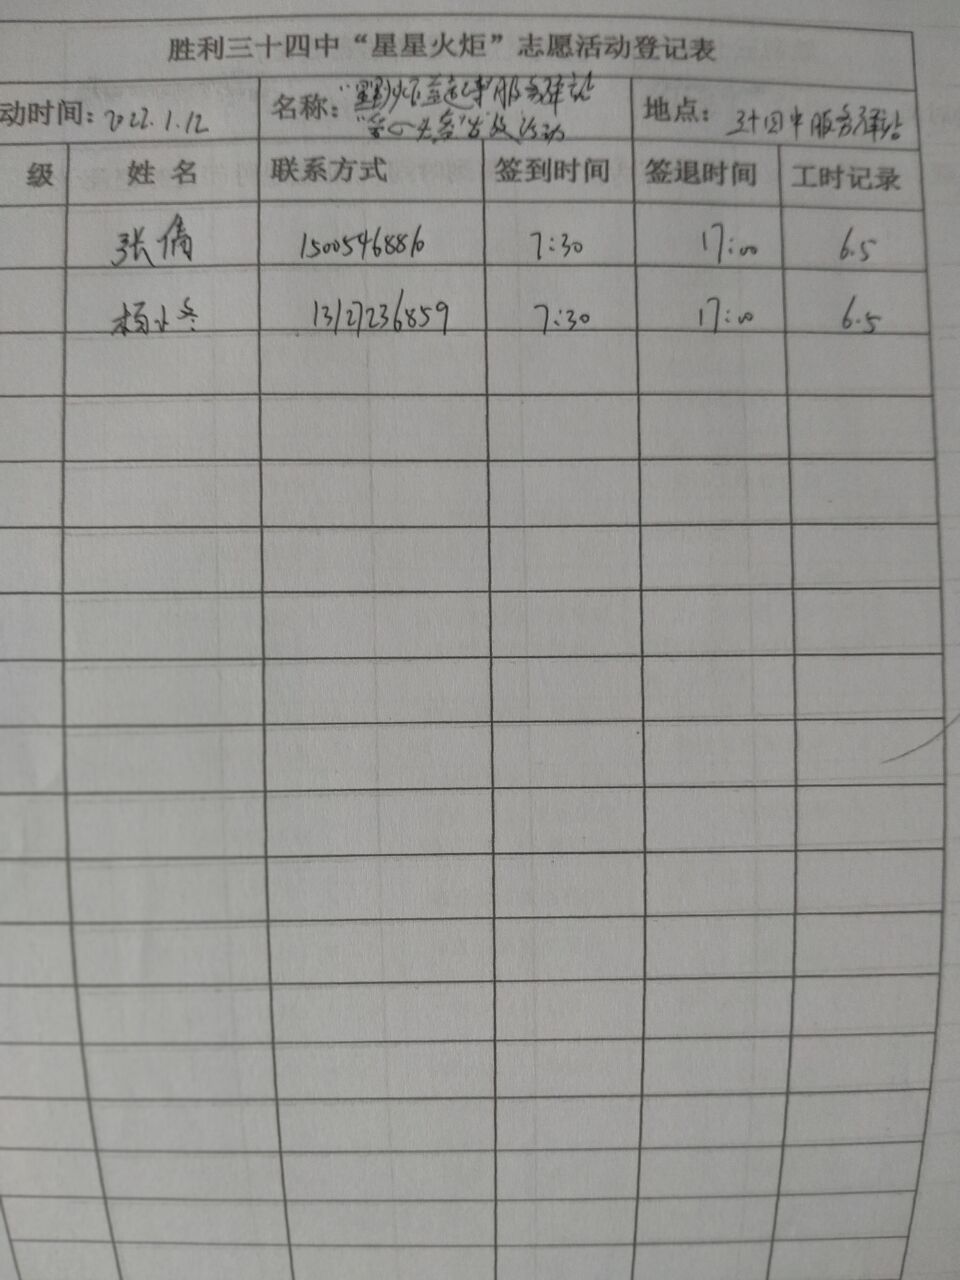 胜利三十四中“星星火炬”志愿活动登记表
动时间：2022.1.12 名称： 服务驿站 地点：三十四中服务驿站
活动
级 姓名 联系方式 签到时间 签退时间 工时记录
张倩 15005468816 7:30 17:00 6.5
杨小冬 13127236859 7:30 17:00 6.5